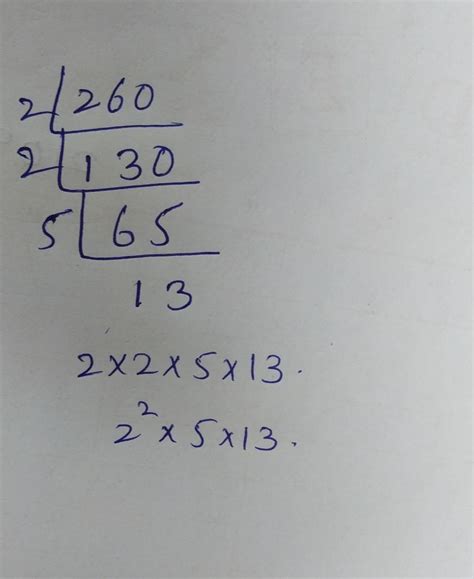 2 260
2 130
5 65
13
2×2×5×13.
2²×5×13.